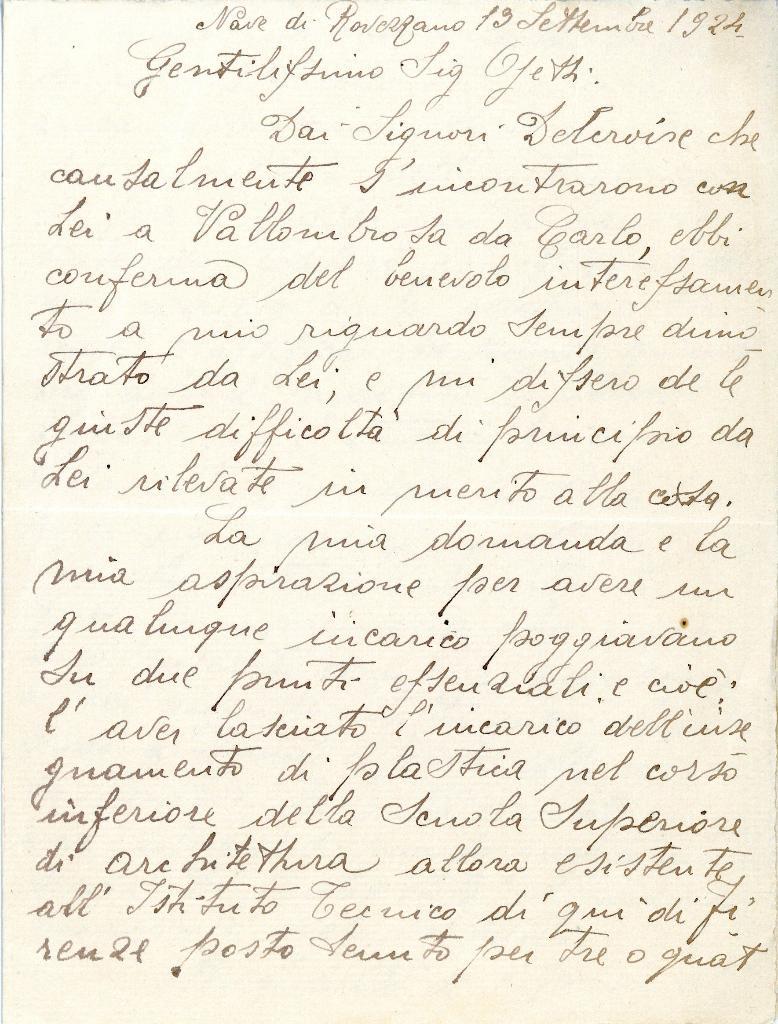 Nave di Rovezzano 13 Settembre 1924
Gentilissimo Sig Ojetti.
Dai Signori Delcroise che
causalmente s'incontrarono con
Lei a Vallombrosa da Carlo, ebbi
conferma del benevolo interessamen
to a mio riguardo sempre dimo
strato da Lei, e mi dissero de le
giuste difficoltà di principio da
Lei rilevate in merito alla cosa.
La mia domanda e la
mia aspirazione per avere un
qualunque incarico poggiavano
su due punti essenziali e cioè:
l'aver lasciato l'incarico dell'inse
gnamento di plastica nel corso
inferiore della Scuola Superiore
di architettura allora esistente
all'Istituto Tecnico di qui di Fi
renze posto tenuto per tre o quat